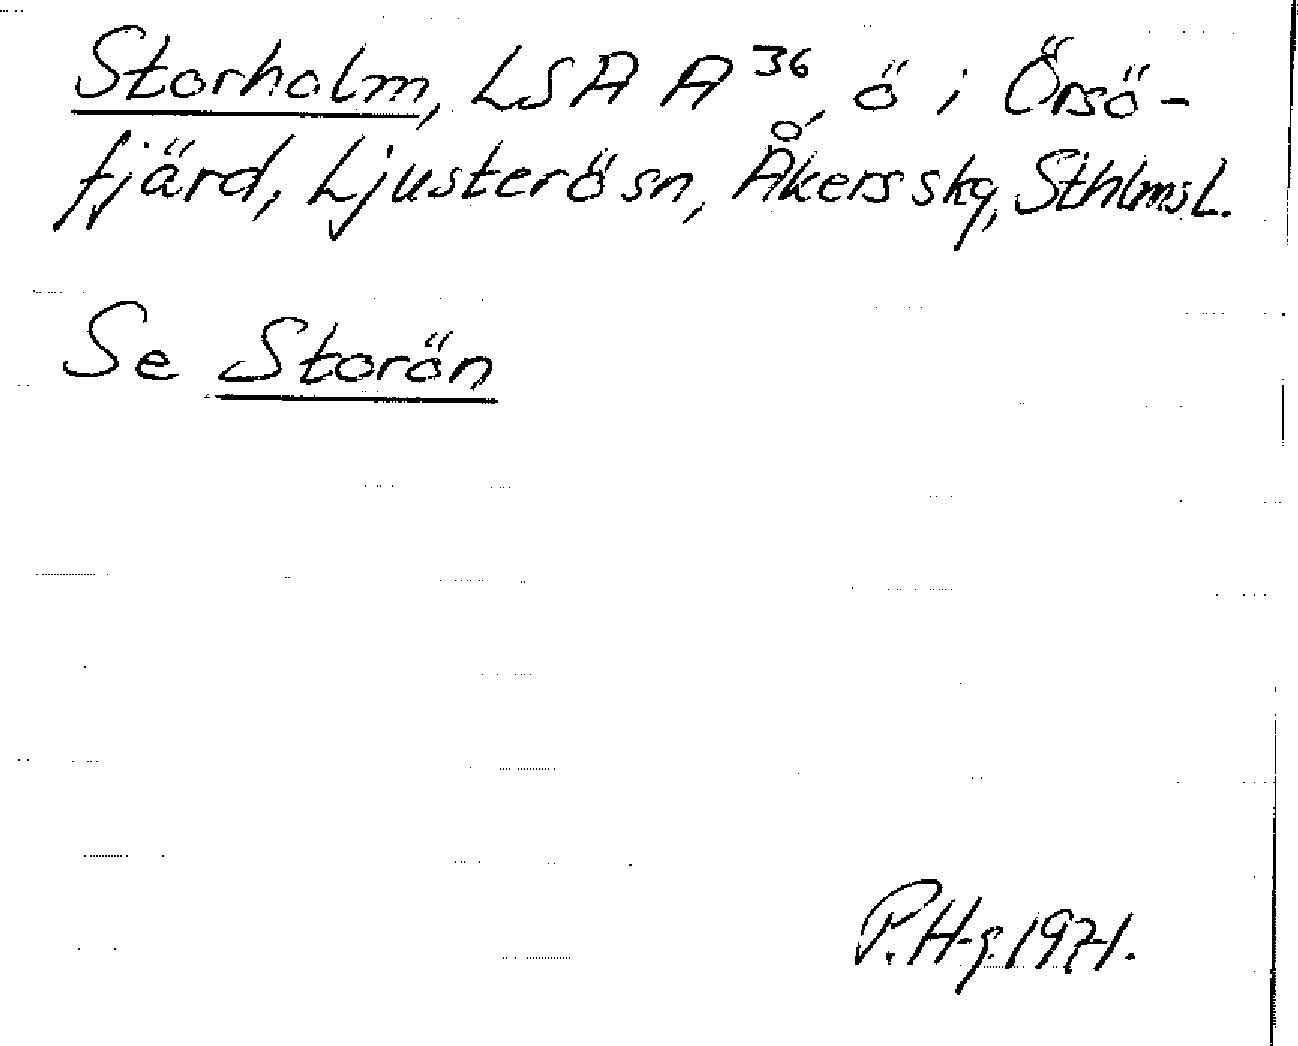 Storholm, LSA A³⁶, ö i Örsö-
fjärd, Ljusterö sn, Åkers skg, Sthlms L.
Se Storön
P. H-g. 1971.